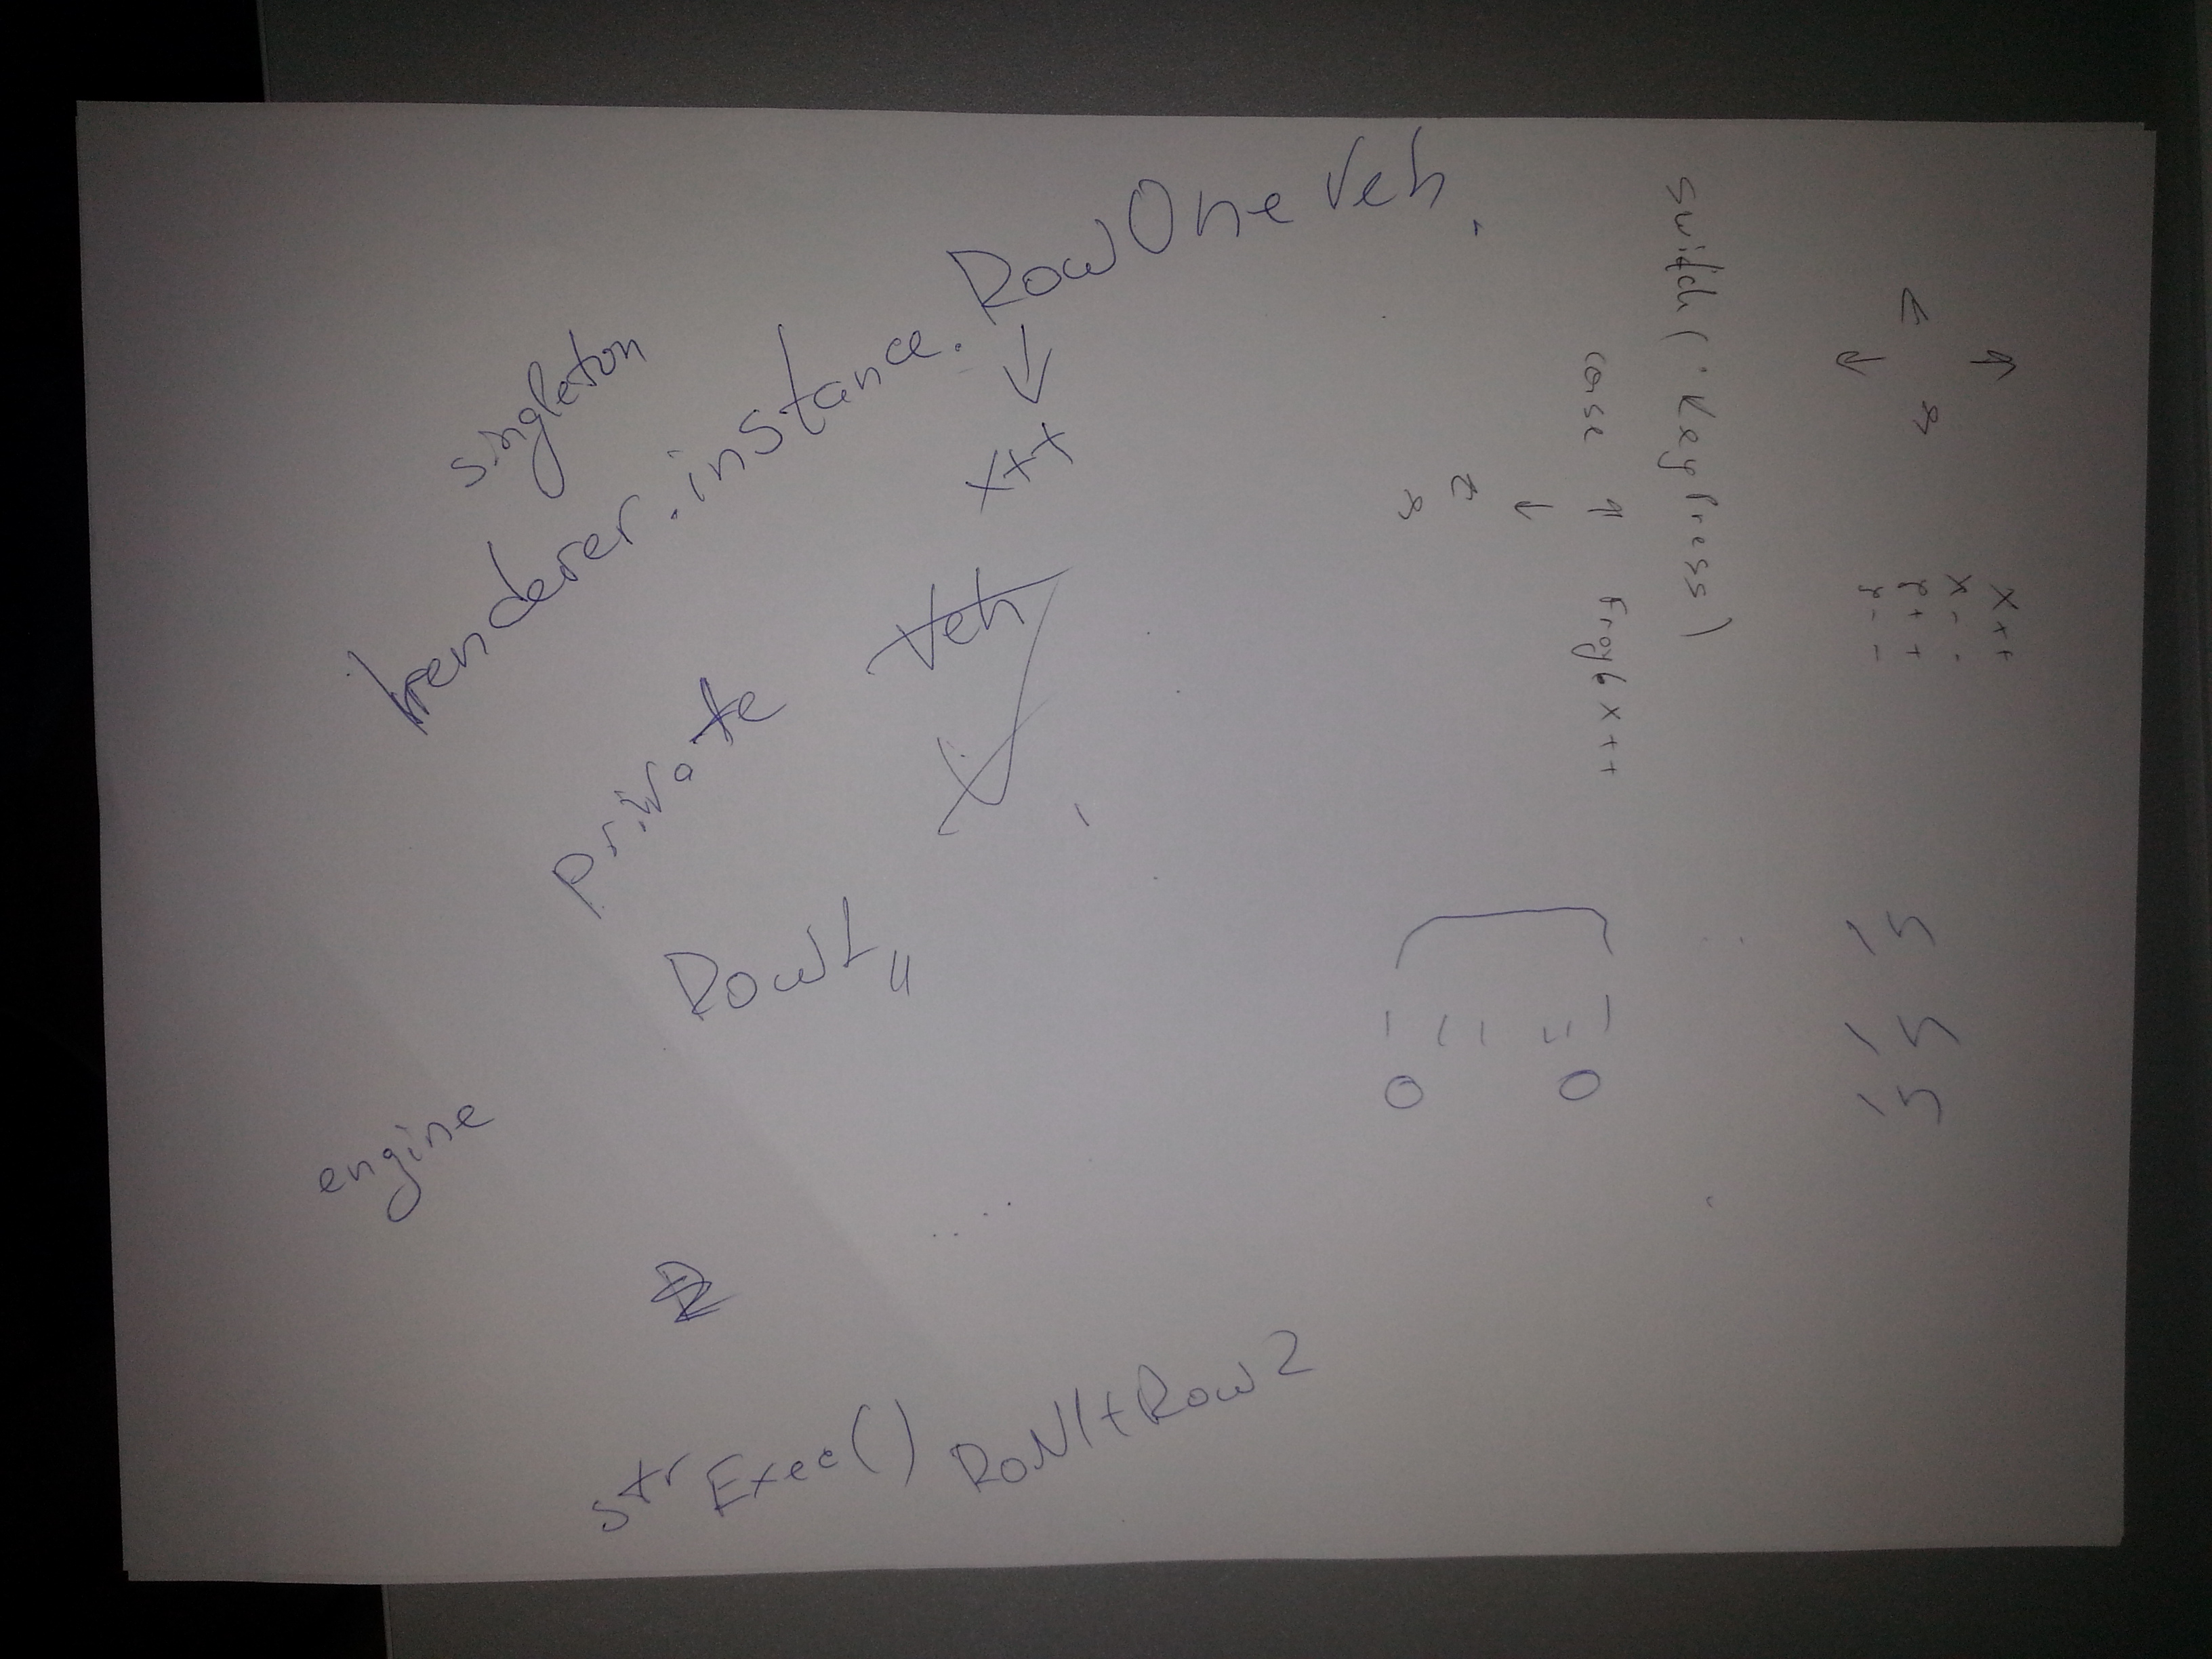 singleton
renderer.instance.RowOneVeh
x++
private
Veh
Row1
engine
strExec() Row1+Row2
switch (KeyPress)
case
Frogb x++
x++
x--
y++
y--